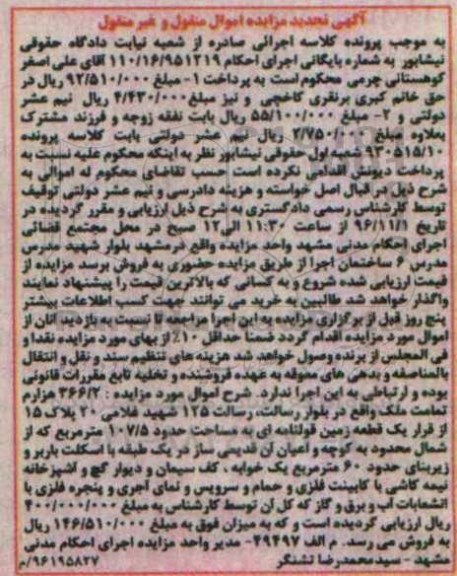 آگهی تجدید مزایده اموال منقول و غیر منقول
به موجب پرونده کلاسه اجرائی صادره از شعبه نیابت دادگاه حقوقی
نیشابور به شماره بایگانی اجرای احکام ۱۱۰/۱۶/۹۵۱۲۱۹ آقای علی اصغر
کوهستانی چرمی محکوم است به پرداخت ۱- مبلغ ۹۲/۵۱۰/۰۰۰ ریال در
حق خانم کبری برنقری کاخچی و نیز مبلغ ۴/۴۳۰/۰۰۰ ریال نیم عشر
دولتی و ۲- مبلغ ۵۵/۱۰۰/۰۰۰ ریال بابت نفقه زوجه و فرزند مشترک
بعلاوه مبلغ ۲/۷۵۰/۰۰۰ ریال نیم عشر دولتی بابت کلاسه پرونده
۹۳۰۵۱۵/۱۰ شعبه اول حقوقی نیشابور نظر به اینکه محکوم علیه نسبت به
پرداخت دیونش اقدامی نکرده است حسب تقاضای محکوم له اموالی به
شرح ذیل در قبال اصل خواسته و هزینه دادرسی و نیم عشر دولتی توقیف
توسط کارشناس رسمی دادگستری به شرح ذیل ارزیابی و مقرر گردیده در
تاریخ ۹۶/۱۱/۱ از ساعت ۱۱:۳۰ الی ۱۲ صبح در محل مجتمع قضائی
اجرای احکام مدنی مشهد واحد مزایده واقع در مشهد بلوار شهید مدرس
مدرس ۶ ساختمان اجرا از طریق مزایده حضوری به فروش برسد مزایده از
قیمت ارزیابی شده شروع و به کسانی که بالاترین قیمت را پیشنهاد نمایند
واگذار خواهد شد طالبین به خرید می توانند جهت کسب اطلاعات بیشتر
پنج روز قبل از برگزاری مزایده به این اجرا مراجعه تا نسبت به بازدید آنان از
اموال مورد مزایده اقدام گردد ضمنا حداقل ۱۰٪ از بهای مورد مزایده نقدا و
فی المجلس از برنده وصول خواهد شد هزینه های تنظیم سند و نقل و انتقال
بالمناصفه و بدهی های معوقه به عهده فروشنده و تخلیه تابع مقررات قانونی
بوده و ارتباطی به این اجرا ندارد. شرح اموال مورد مزایده : ۳۶۶/۲ هزارم
تمامت ملک واقع در بلوار رسالت، رسالت ۱۲۵ شهید غلامی ۲۰ پلاک ۱۵
از قرار یک قطعه زمین قولنامه ای به مساحت حدود ۱۰۷/۵ مترمربع که از
شمال محدود به کوچه و اعیان آن قدیمی ساز در یک طبقه با اسکلت باربر و
زیربنای حدود ۶۰ مترمربع یک خوابه ، کف سیمان و دیوار گچ و آشپزخانه
نیمه کاشی با کابینت فلزی و حمام و سرویس و نمای آجری و پنجره فلزی با
انشعابات آب و برق و گاز که کل آن توسط کارشناس به مبلغ ۴۰۰/۰۰۰/۰۰۰
ریال ارزیابی گردیده است و که به میزان فوق به مبلغ ۱۴۶/۵۱۰/۰۰۰ ریال
به فروش می رسد. م الف ۴۹۴۹۷- مدیر واحد مزایده اجرای احکام مدنی
مشهد - سید محمدرضا تشنگر ۹۶۱۹۵۸۲۷/م